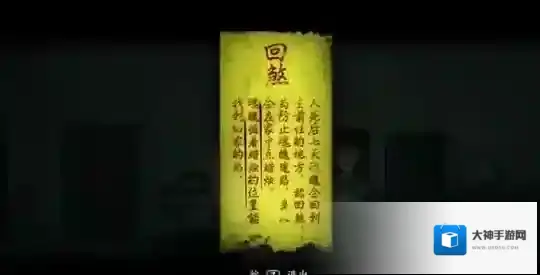 回煞
人死后七天魂魄会回到
生前住的地方,称回煞,
为防止魂魄迷路,亲人
会在家中点蜡烛。
魂魄循着蜡烛的位置能
找到回家的路。
按 退出
大神手游网